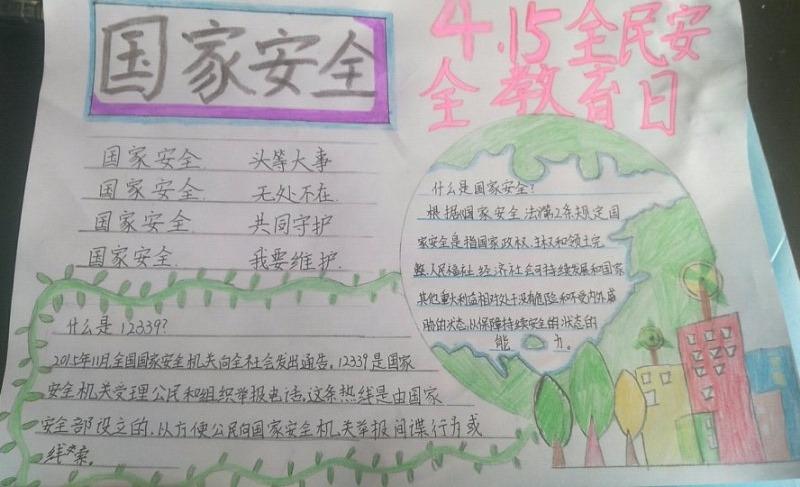 国家安全
4.15全民安
全教育日
国家安全. 头等大事
国家安全. 无处不在.
国家安全. 共同守护
国家安全. 我要维护.
什么是国家安全?
根据国家安全法第2条规定国
家安全是指国家政权、主权和领土完
整、人民福祉、经济社会可持续发展和国家
其他重大利益相对处于没有危险和不受内外威
胁的状态,以保障持续安全的状态的
能力。
什么是12339?
2015年11月,全国国家安全机关向全社会发出通告,12339是国家
安全机关受理公民和组织举报电话,这条热线是由国家
安全部设立的,以方便公民向国家安全机关举报间谍行为或
线索。